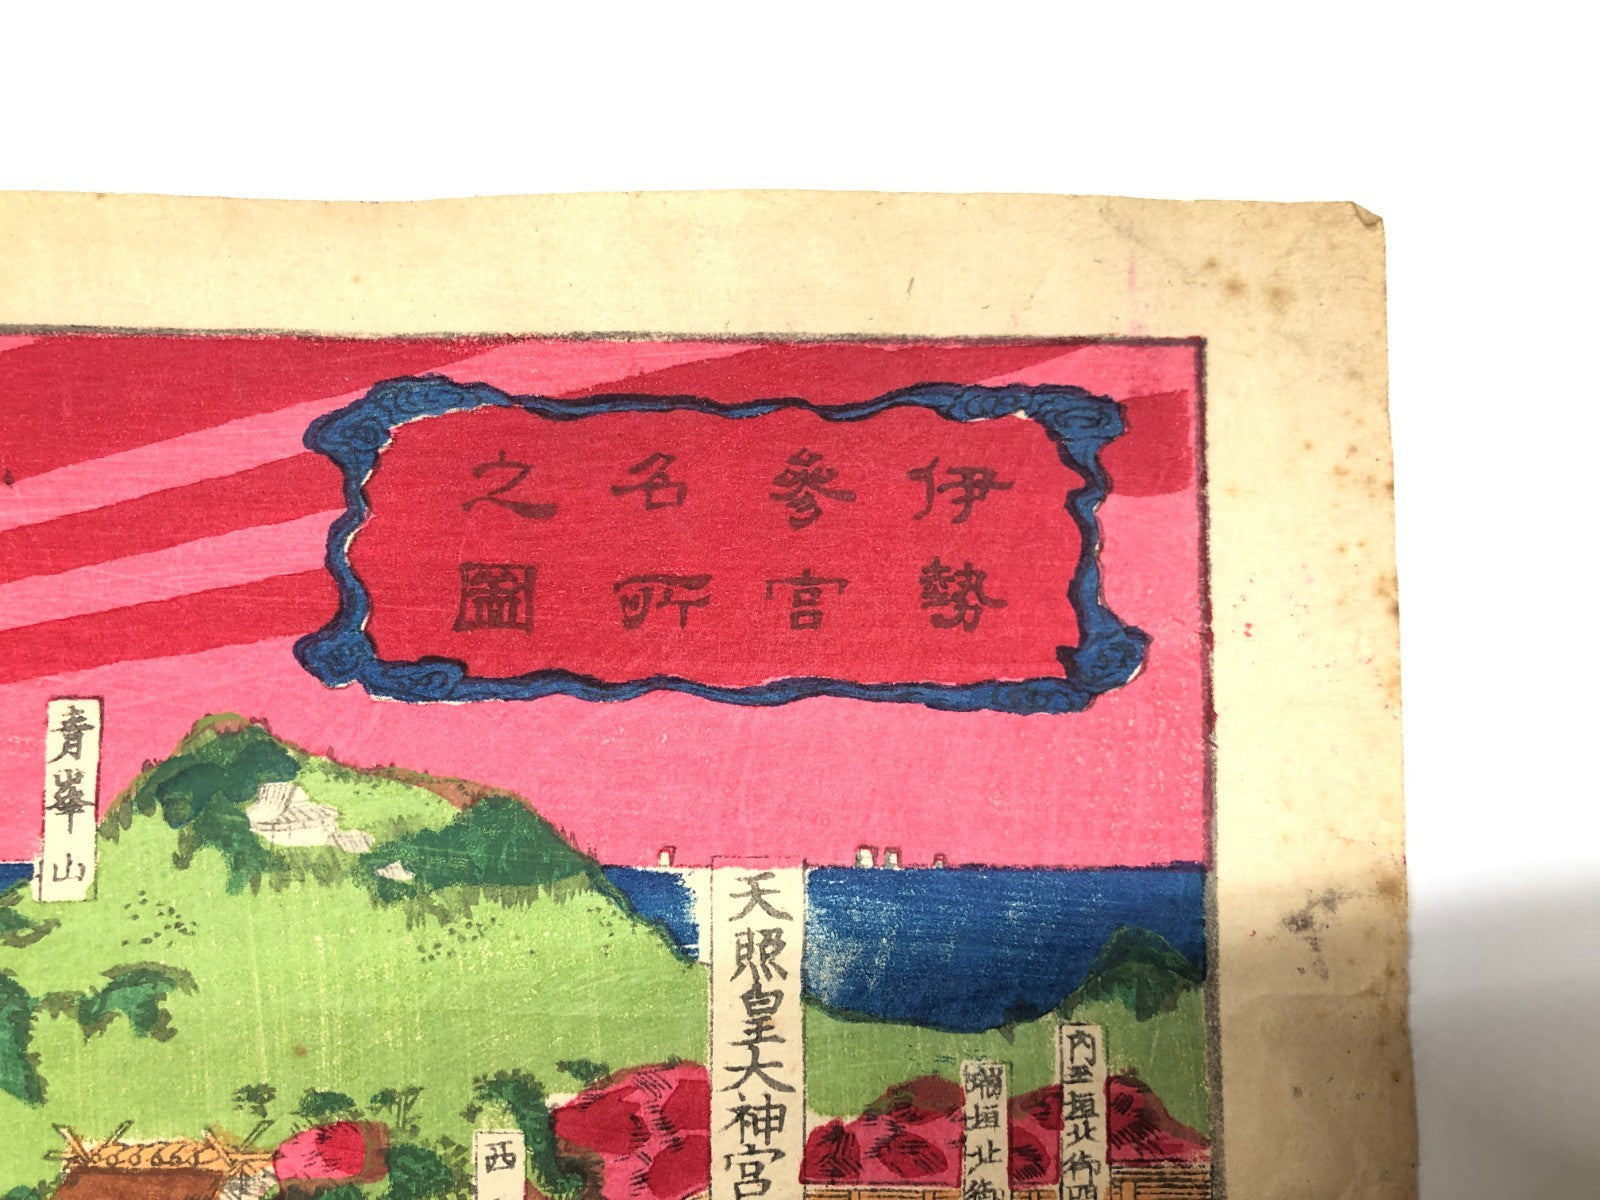 伊勢
參宮
名所
之圖
内玉垣北御
瑞垣北御
天照皇大神宮
西
青峯山